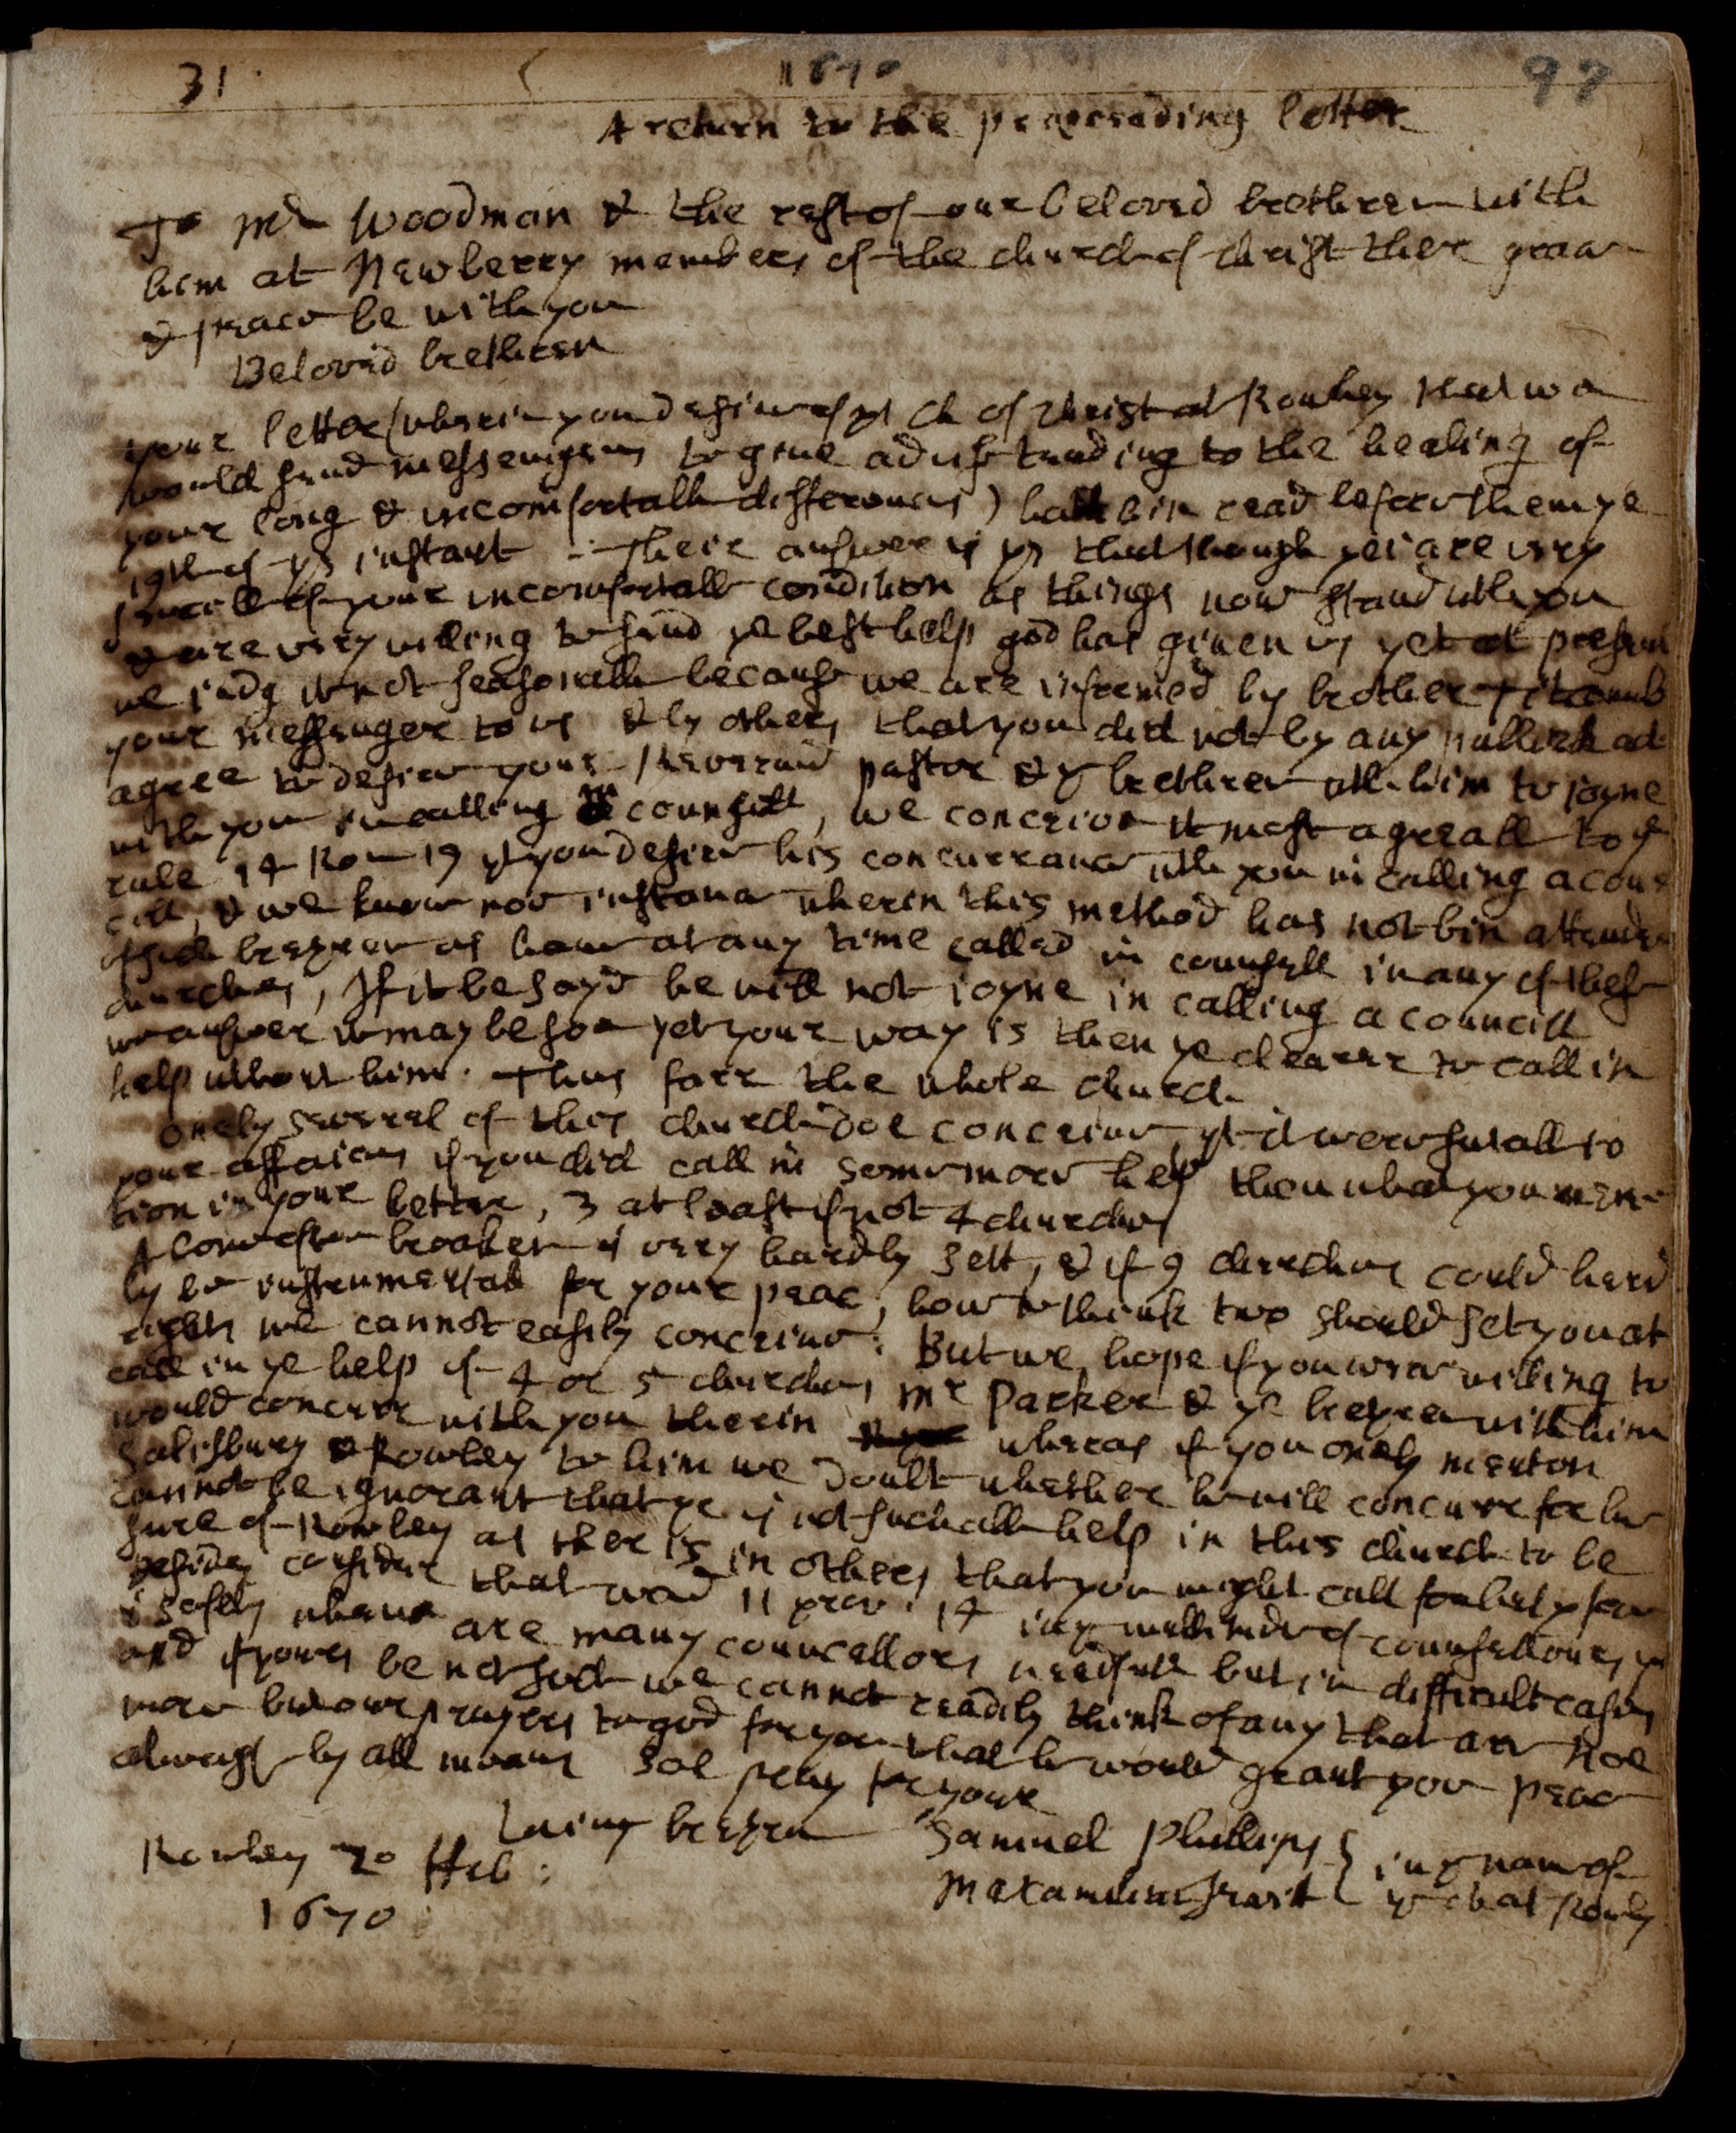 31 1670 97
A return to the preceeding letter
To Mr Woodman & the rest of our beloved brethren with
him at Newberry members of the church of christ there grace
& peace be with you
Beloved brethren
your letter (wherein you desire of ye Ch of Christ at Rowley that we
would send messengers to give advise tending to the healing of
your long & uncomfortable differences) hath bin read before them ye
19th of ys instant - their answer is ys that though yei are very
sencible of your uncomfortable condition as things now stand with you
& are very willing to send ye best help god has given us yet at present
we iudg it not seasonable because we are informed by brother Titcomb
your messenger to us & by others that you did not by any publick act
agree to desire your Reverend pastor & ye brethren with him to joyne
with you in calling a councill, we conceive it most agreeable to ye
rule 14 Rom 19 yt you desire his concurrance with you in calling a coun
cill, & we know noe instance wherein this method has not bin attended
of such brethren as have at any time called in counsell in any of these
churches, If it be sayd he will not ioyne in calling a councill
we answer it may be soe yet your way is then ye clearer to call in
help without him. Thus farr the whole church
Onely severel of this church doe conceive yt it were sutable to
your affaires if you did call in some more help then what you men
tion in your letter, 3 at least if not 4 churches
A Bone often broaken is very hardly sett, & if 9 churches could hard
ly be instrumentall for your peac, how to think two should set you at
rights we cannot easily conceive: But we hope if you were willing to
call in ye help of 4 or 5 churches, Mr Parker & ye brethren with him
would concurr with you therein whereas if you onely mention
Salisbury & Rowley to him we doubt whether he will concurr for he
cannot be ignorant that yr is not such able help in this church to be
sure of Rowley as ther is in others that you might call for help from
besides consider that word 11 prov. 14 in ye multitude of counsellours yr
is safety where are many councellors needfull but in difficult cases
and if yours be not such we cannot readily think of any that are Noe
more but our prayers to god for you that he would grant you peac
always by all means soe pray for your
Loving brethren Samuel Phillips
Rowley 20 Feb: in ye name of
1670 ye ch at Rowly